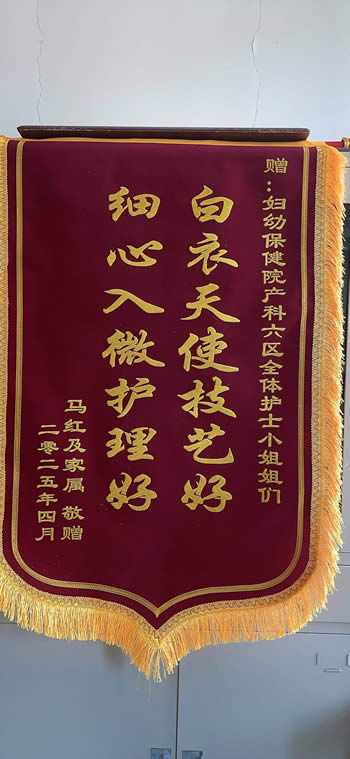 赠：妇幼保健院产科六区全体护士小姐姐们
白衣天使技艺好
细心入微护理好
马红及家属 敬赠
二零二五年四月